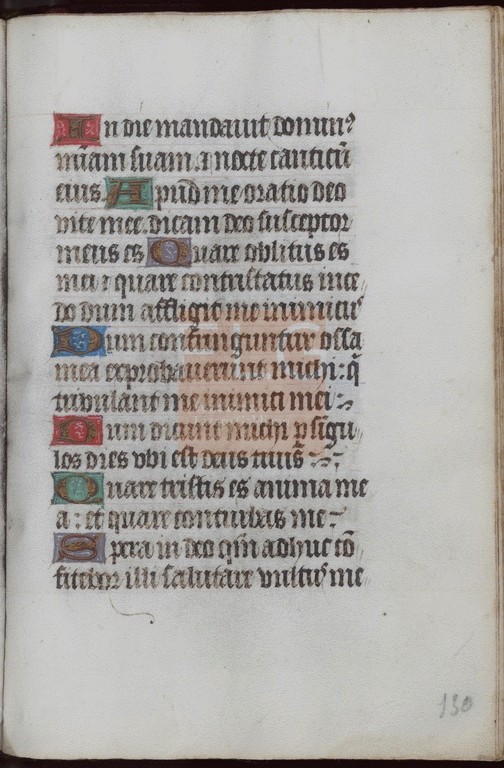 In die mandavit dominꝰ
mi͞am suam ⁊ nocte canticū
eius. Apud me oratio deo
vite mee. dicam deo susceptor
meus es Quare oblitus es
mei ⁊ quare contristatus ince//
do dum affligit me inimicꝰ
Dum confringuntur ossa
mea exprobraverunt michi : q̄
tribulant me inimici mei :~
Dum dicunt michi ꝑ singu//
los dies vbi est deus tuus
Quare tristis es anima me
a : et quare conturbas me :~
Spera in deo qm̄ adhuc cō//
fitebor illi salutare vultꝰ me//
130